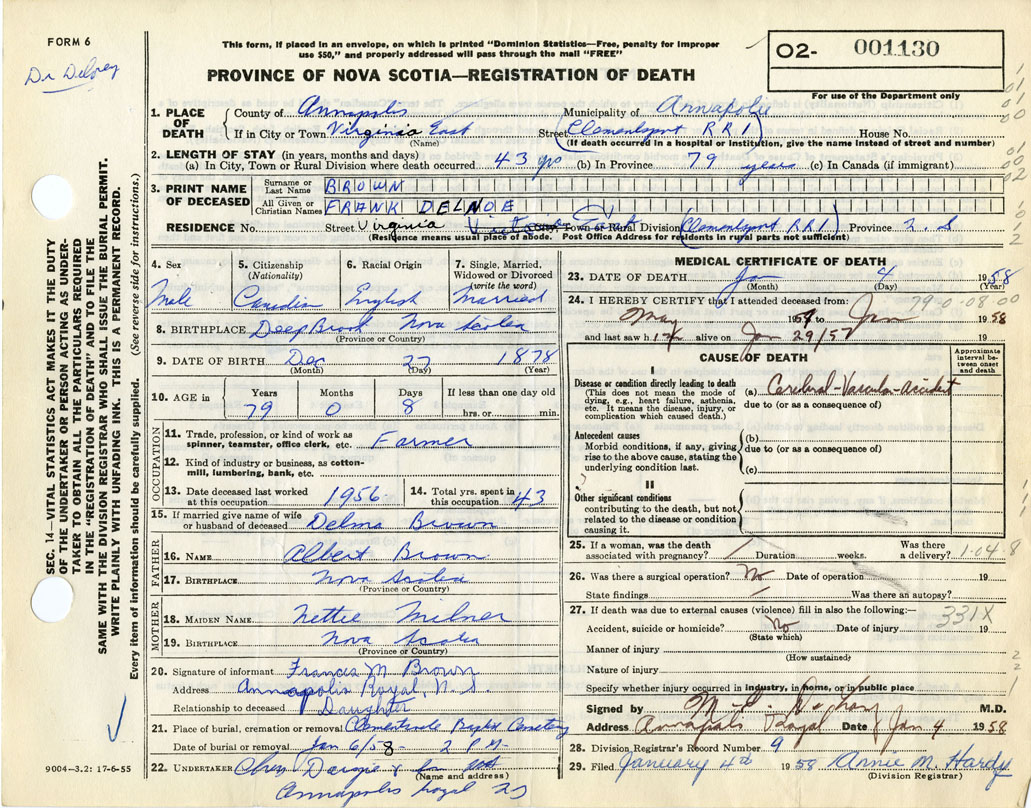 FORM 6
Dr Delorey
This form, if placed in an envelope, on which is printed "Dominion Statistics—Free, penalty for improper
use $50," and properly addressed will pass through the mail "FREE"
PROVINCE OF NOVA SCOTIA—REGISTRATION OF DEATH
O2- 001130
For use of the Department only
SEC. 14—VITAL STATISTICS ACT MAKES IT THE DUTY
OF THE UNDERTAKER OR PERSON ACTING AS UNDER-
TAKER TO OBTAIN ALL THE PARTICULARS REQUIRED
IN THE "REGISTRATION OF DEATH" AND TO FILE THE
SAME WITH THE DIVISION REGISTRAR WHO SHALL ISSUE THE BURIAL PERMIT.
WRITE PLAINLY WITH UNFADING INK. THIS IS A PERMANENT RECORD.
Every item of information should be carefully supplied. (See reverse side for instructions.)
1. PLACE OF DEATH
County of Annapolis Municipality of Annapolis
If in City or Town Virginia East Street Clementsport RR1 House No.
(Name) (If death occurred in a hospital or institution, give the name instead of street and number)
2. LENGTH OF STAY (in years, months and days)
(a) In City, Town or Rural Division where death occurred 43 yrs (b) In Province 79 years (c) In Canada (if immigrant)
3. PRINT NAME OF DECEASED
Surname or Last Name BROWN
All Given or Christian Names FRANK DELNOE
RESIDENCE No. Street Virginia East City, Town or Rural Division (Clementsport RR1) Province N.S
(Residence means usual place of abode. Post Office Address for residents in rural parts not sufficient)
4. Sex 5. Citizenship (Nationality) 6. Racial Origin 7. Single, Married, Widowed or Divorced (write the word)
Male Canadian English Married
8. BIRTHPLACE Deep Brook Nova Scotia
(Province or Country)
9. DATE OF BIRTH Dec 27 1878
(Month) (Day) (Year)
10. AGE in Years Months Days If less than one day old
79 0 8 hrs. or min.
OCCUPATION
11. Trade, profession, or kind of work as spinner, teamster, office clerk, etc. Farmer
12. Kind of industry or business, as cotton-mill, lumbering, bank, etc.
13. Date deceased last worked at this occupation 1956 14. Total yrs. spent in this occupation 43
15. If married give name of wife or husband of deceased Delma Brown
FATHER
16. NAME Albert Brown
17. BIRTHPLACE Nova Scotia
(Province or Country)
MOTHER
18. MAIDEN NAME Nettie Milner
19. BIRTHPLACE Nova Scotia
(Province or Country)
20. Signature of informant Frances M. Brown
Address Annapolis Royal, N.S.
Relationship to deceased Daughter
21. Place of burial, cremation or removal Baptist Cemetery
Date of burial or removal Jan 6/58 - 2 P.M.
22. UNDERTAKER
(Name and address)
Annapolis Royal NS
9004—3.2: 17-6-55
MEDICAL CERTIFICATE OF DEATH
23. DATE OF DEATH Jan 4 1958
(Month) (Day) (Year)
24. I HEREBY CERTIFY that I attended deceased from: 79-0-08-00
May 1957 to Jan 1958
and last saw him alive on Jan 29/57
CAUSE OF DEATH
Approximate interval between onset and death
I
Disease or condition directly leading to death
(This does not mean the mode of dying, e.g., heart failure, asthenia, etc. It means the disease, injury, or complication which caused death.)
(a) Cerebral-Vascular-accident
due to (or as a consequence of)
Antecedent causes
Morbid conditions, if any, giving rise to the above cause, stating the underlying condition last.
(b)
due to (or as a consequence of)
(c)
II
Other significant conditions
contributing to the death, but not related to the disease or condition causing it.
25. If a woman, was the death associated with pregnancy? Duration weeks. Was there a delivery? 1-04-8
26. Was there a surgical operation? No Date of operation 19
State findings Was there an autopsy?
27. If death was due to external causes (violence) fill in also the following:— 331X
Accident, suicide or homicide? No Date of injury 19
(State which)
Manner of injury
(How sustained)
Nature of injury
Specify whether injury occurred in industry, in home, or in public place
Signed by M.D.
Address Annapolis Royal Date Jan 4 1958
28. Division Registrar's Record Number 9
29. Filed January 4th 1958 Annie M. Hardy
(Division Registrar)